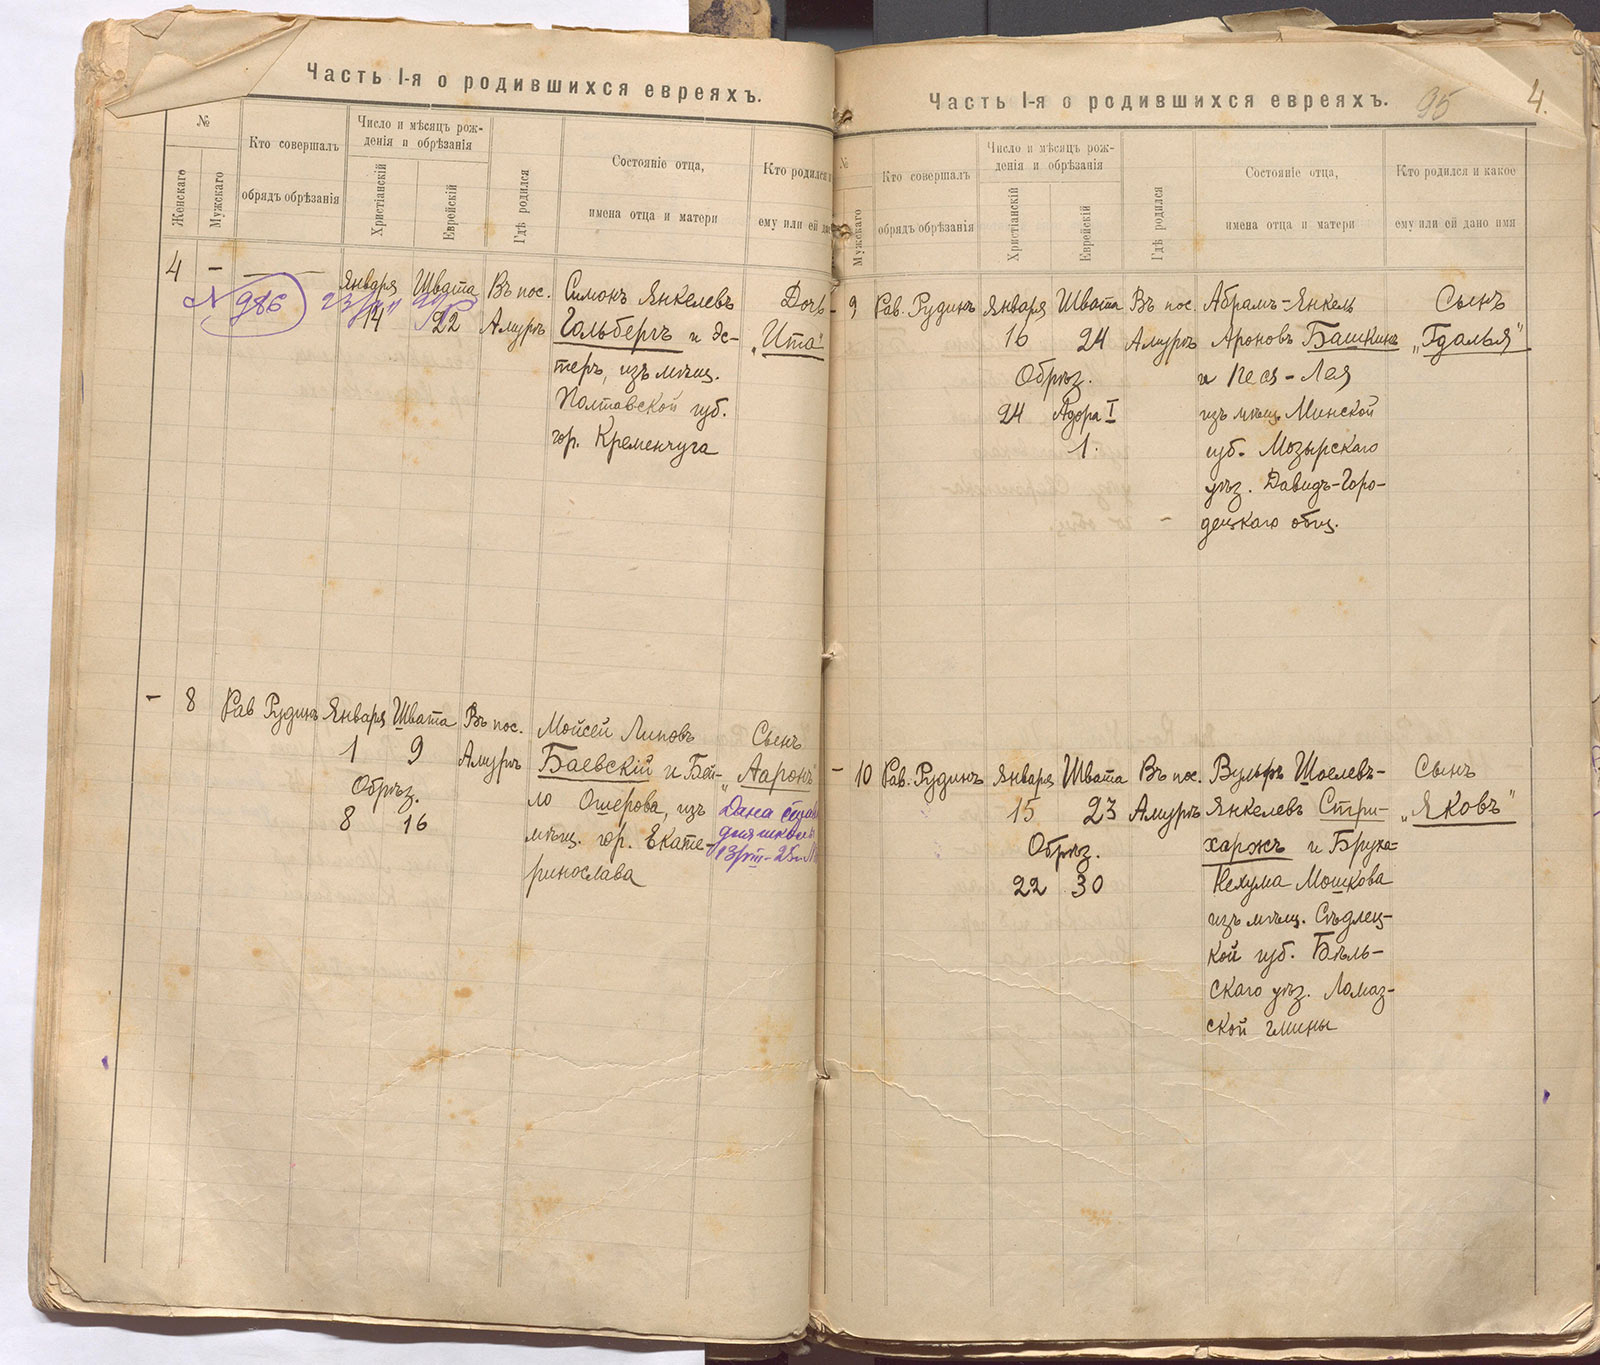 Часть I-я о родившихся евреяхъ.
№
Женскаго
Мужскаго
Кто совершалъ
обрядъ обрѣзанія
Число и мѣсяцъ рож-
денія и обрѣзанія
Христіанскій
Еврейскій
Гдѣ родился
Состояніе отца,
имена отца и матери
Кто родился и
ему или ей да
4 — Января Швата Въ пос. Симонъ Янкелевъ Дочь
№ 986
14 22 Амуръ Гольбергъ и Эс- „Ита"
теръ, изъ мѣщ.
Полтавской губ.
гор. Кременчуга
— 8 Рав Рудинъ Января Швата Въ пос. Мойсей Липовъ Сынъ
1 9 Амуръ Баевскій и Бей- „Ааронъ"
Обрѣз. ло Ошерова, изъ Дана
8 16 мѣщ. гор. Екате- для школы
ринослава 13/VIII-
Часть I-я о родившихся евреяхъ. 95 4.
№
Мужскаго
Кто совершалъ
обрядъ обрѣзанія
Число и мѣсяцъ рож-
денія и обрѣзанія
Христіанскій
Еврейскій
Гдѣ родился
Состояніе отца,
имена отца и матери
Кто родился и какое
ему или ей дано имя
— 9 Рав. Рудинъ Января Швата Въ пос. Абрамъ-Янкель Сынъ
16 24 Амуръ Ароновъ Башкинъ „Гдалья"
Обрѣз. и Песя-Лая
24 Адора I изъ мѣщ. Минской
1. губ. Мозырскаго
уѣз. Давидъ-Горо-
децкаго общ.
— 10 Рав. Рудинъ Января Швата Въ пос. Вульфъ Шоелевъ-
Сынъ
15 23 Амуръ Янкелевъ Стри- „Яковъ"
Обрѣз. харжъ и Бруха-
22 30 Нехума Мошкова
изъ мѣщ. Сѣдлец-
кой губ. Бѣль-
скаго уѣз. Ломаз-
ской гмины